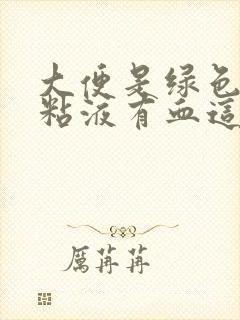 大便是绿色
粘液有血这
厲苒苒